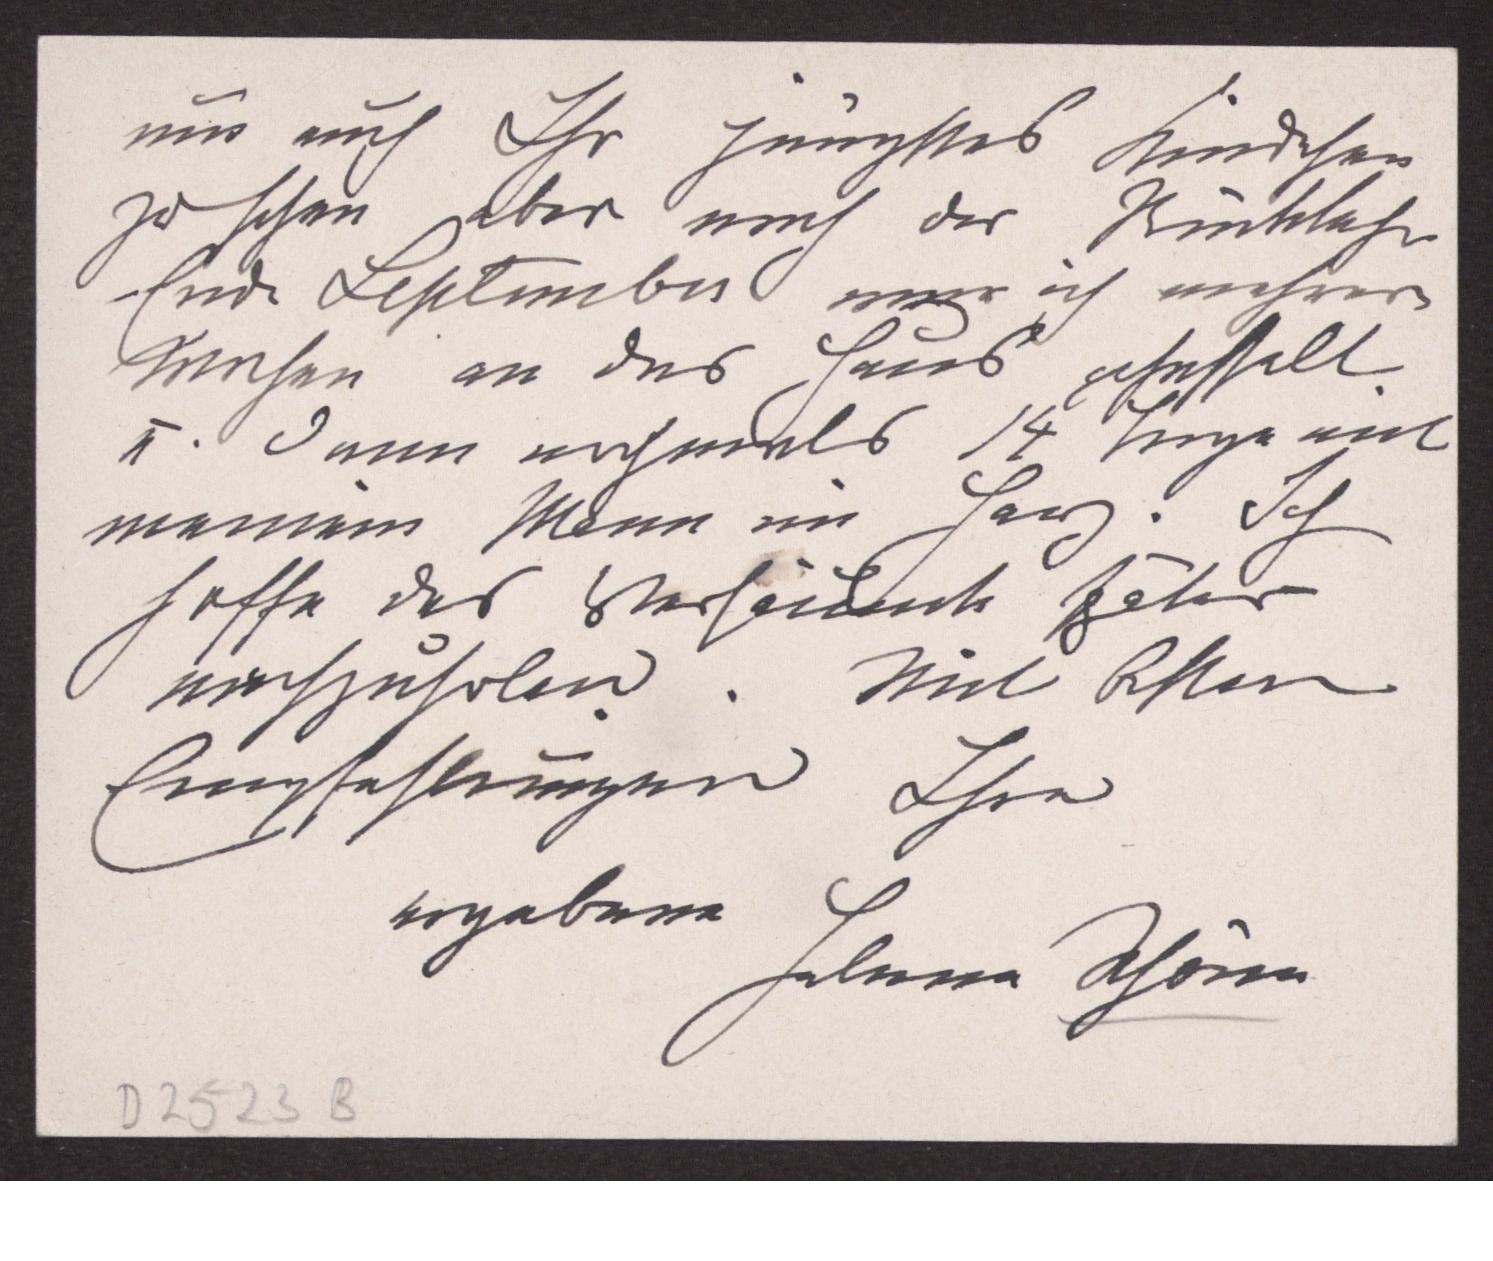 nun auch Ihr jüngstes Kindchen
zu sehen aber nach der Rückkehr
Ende September war ich mehrere
Wochen an das Haus gefesselt
u. dann nochmals 14 Tage mit
meinem Mann im Harz. Ich
hoffe das Versäumte später
nachzuholen. Mit besten
Empfehlungen Ihre
ergebene
Helene Schöne
D 2523 B